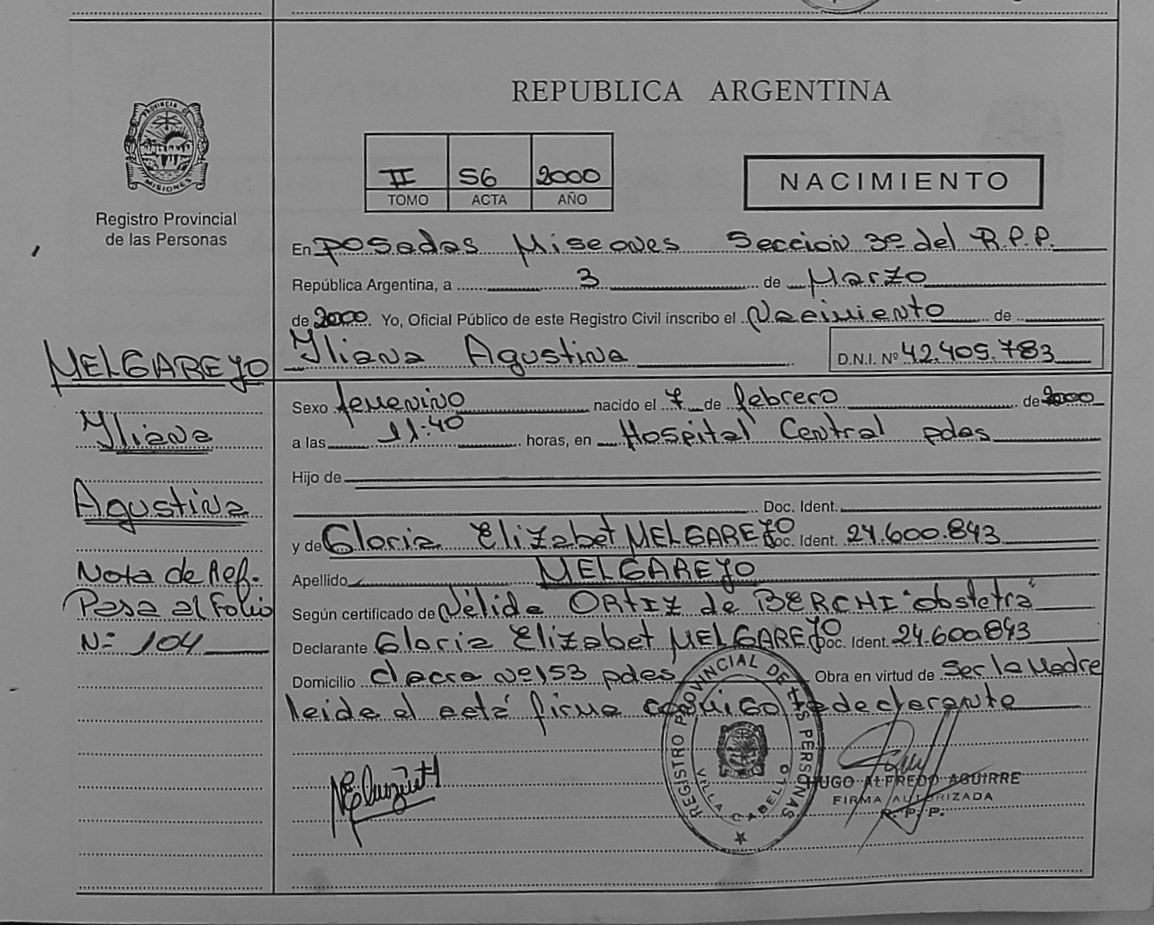 REPUBLICA ARGENTINA
PROVINCIA DE
MISIONES
Registro Provincial
de las Personas
II 56 2000
TOMO ACTA AÑO
NACIMIENTO
En Posadas Misiones Seccion 3º del R.P.P.
República Argentina, a 3 de Marzo
de 2000 Yo, Oficial Público de este Registro Civil inscribo el Nacimiento de
Iliana Agustina D.N.I. Nº 42.405.783
MELGAREJO
Iliana
Agustina
Nota de Ref.
Pasa al Folio
Nº 104
Sexo femenino nacido el 7 de febrero de 2000
a las 11:40 horas, en Hospital Central pdas
Hijo de
Doc. Ident.
y de Gloria Elizabet MELGAREJO Doc. Ident. 24.600.843
Apellido MELGAREJO
Según certificado de Nélida ORTIZ de BERCHI "obstetra"
Declarante Gloria Elizabet MELGAREJO Doc. Ident. 24.600843
Domicilio chacra nº153 pdas Obra en virtud de Ser la Madre
leida el acta firma conmigo la declarante
REGISTRO PROVINCIAL DE LAS PERSONAS
VILLA CABELLO
HUGO ALFREDO AGUIRRE
FIRMA AUTORIZADA
R. P. P.